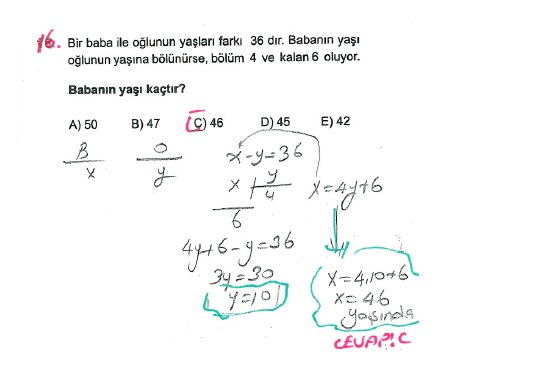 16. Bir baba ile oğlunun yaşları farkı 36 dır. Babanın yaşı
oğlunun yaşına bölünürse, bölüm 4 ve kalan 6 oluyor.
Babanın yaşı kaçtır?
A) 50 B) 47 C) 46 D) 45 E) 42
B O x-y=36
x y x y x=4y+6
4
6
4y+6-y=36
3y=30 x=4.10+6
y=10 x=46
yaşında
CEVAP: C